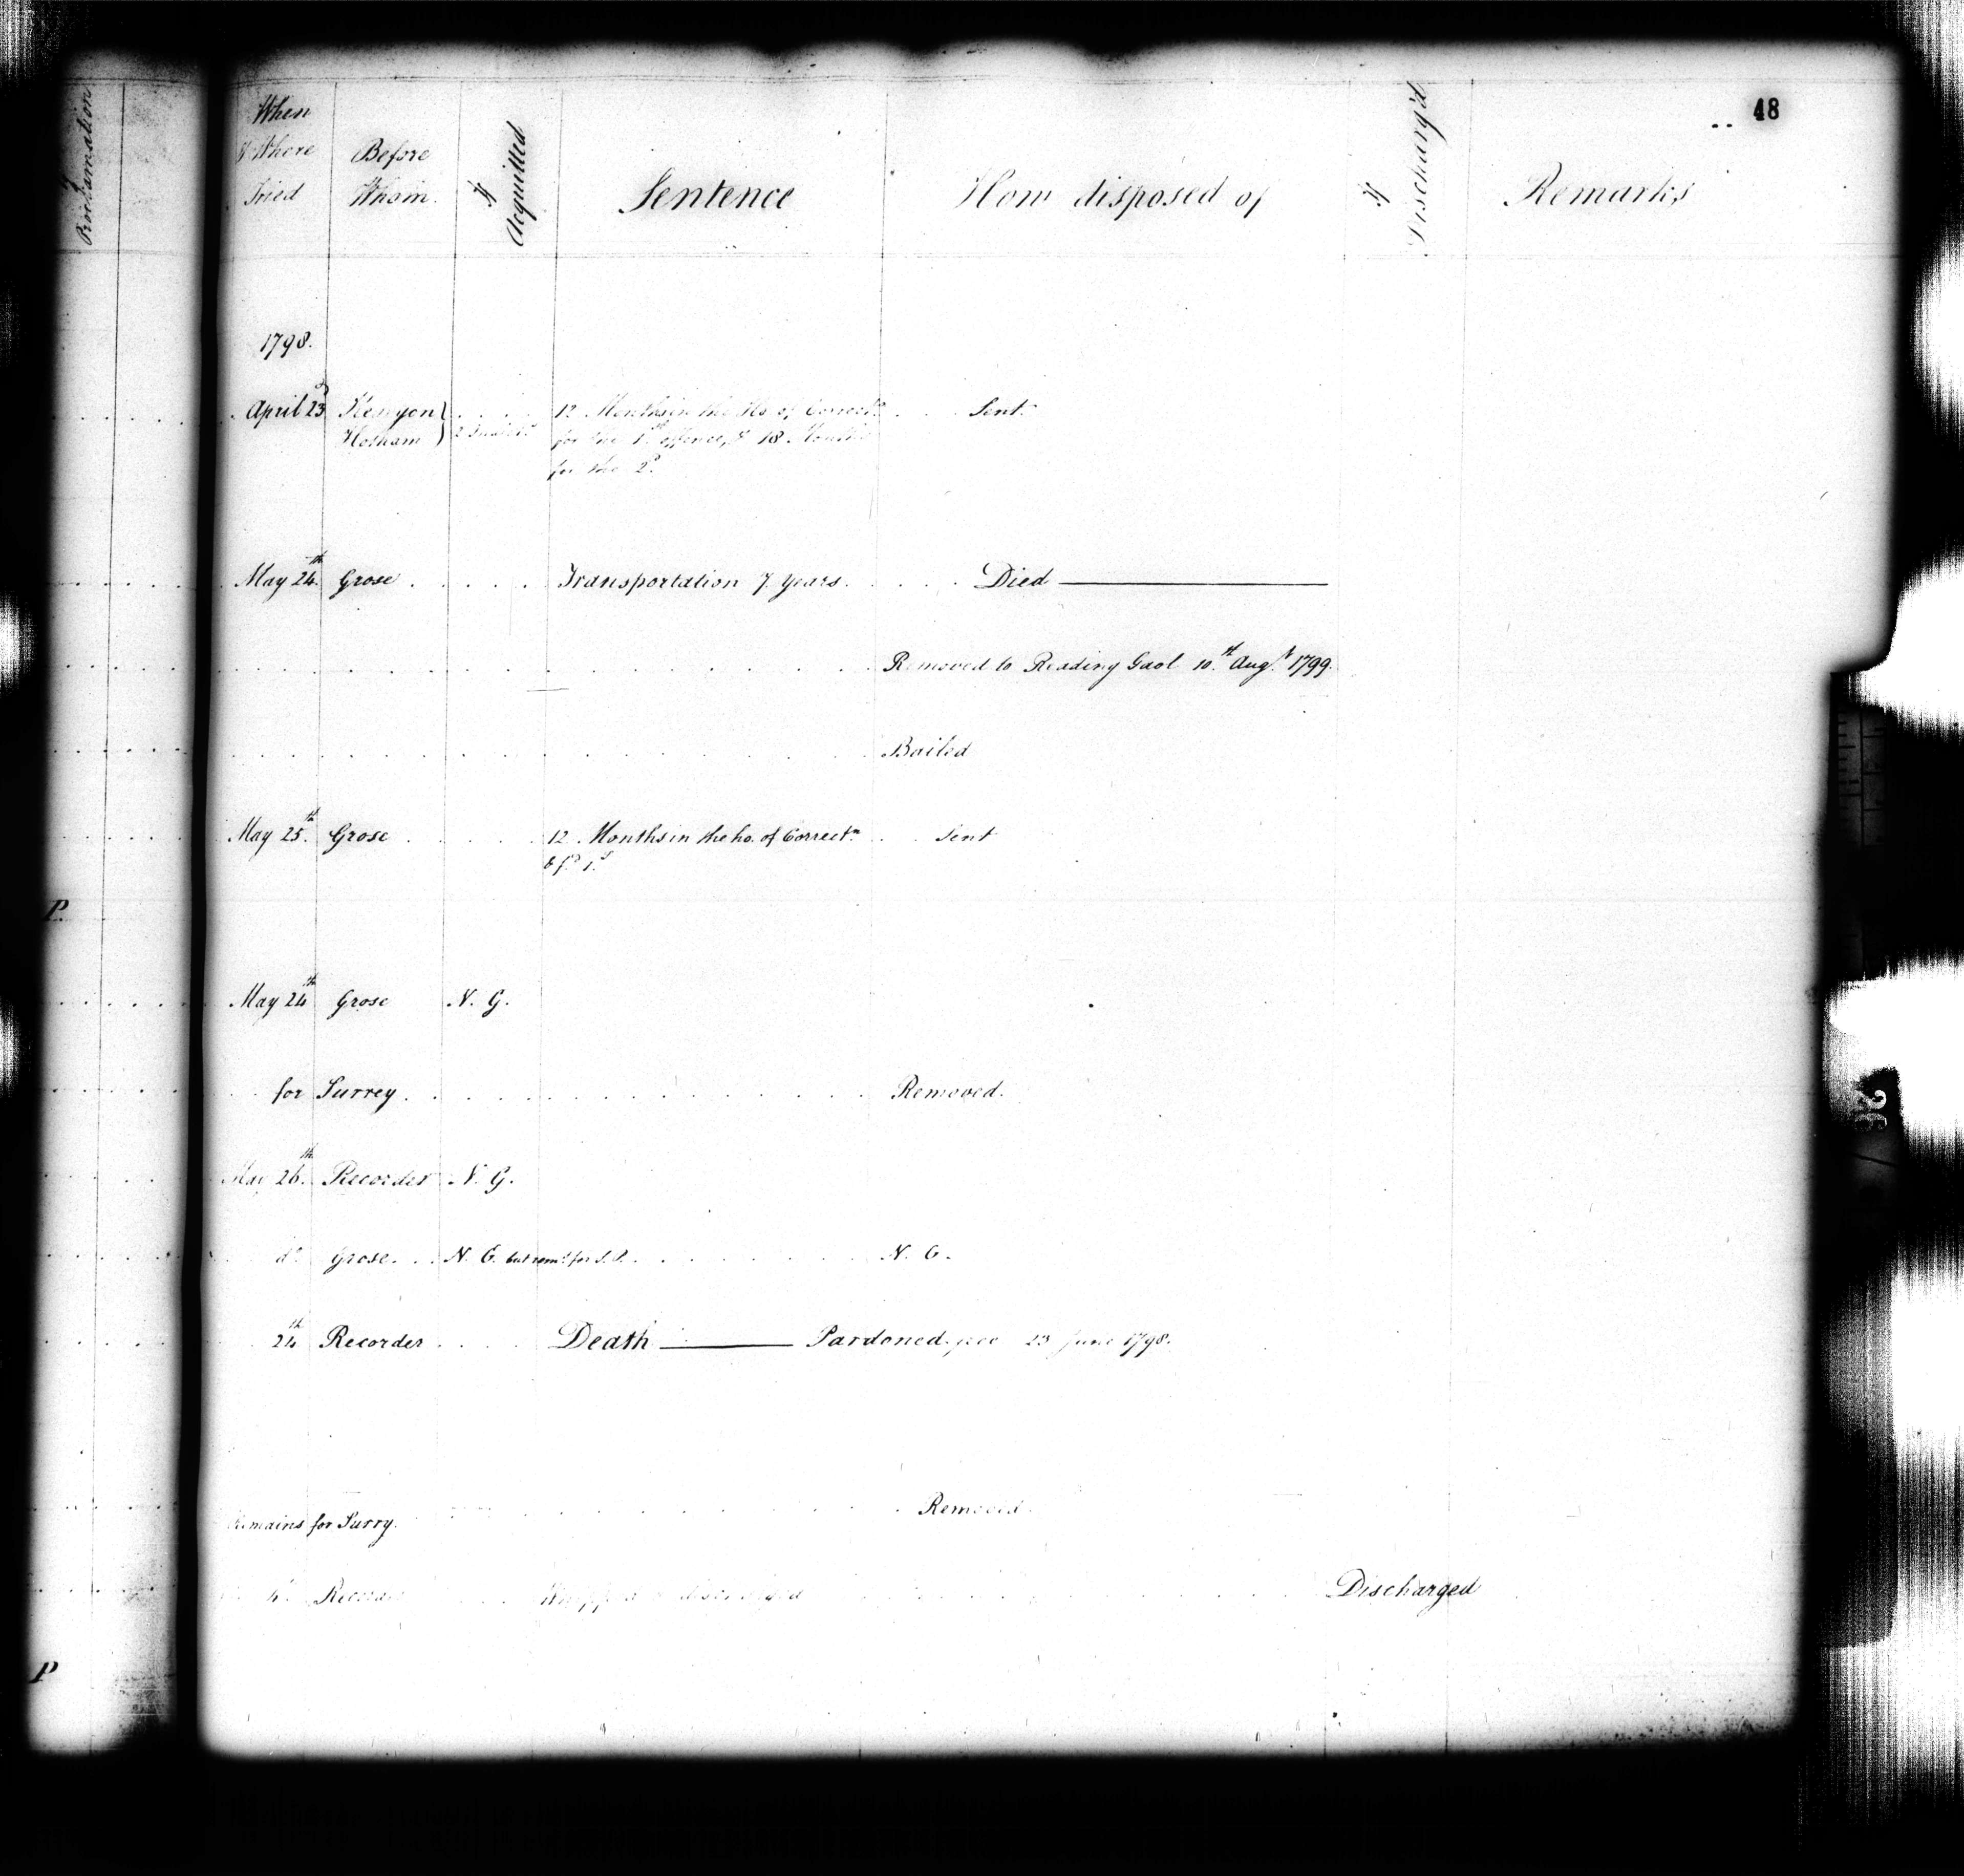 Proclamation
When
& Where
Tried
Before
Whom.
If Acquitted
Sentence
How disposed of
If Discharg'd
Remarks
48
1798.
April 23d Kenyon } . . . . 12 Months in the Ho. of Correctn . . . Sent
Hotham } 2 Indictts for the 1st offence, & 18 Months
for the 2d.
May 24th. Grose . . . . . Transportation 7 years. . . . . Died
Removed to Reading Gaol 10.th Augt. 1799.
Bailed
May 25th. Grose . . . . . 12 Months in the ho. of Correctn . . Sent
& fd 1s
P.
May 24th Grose N. G.
for Surrey . . . . . . . . . . . . . . Removed.
May 26th. Recorder N. G.
do Grose. . . N. G. but remd. for S. P. . . . . . . . N. G.
24th Recorder . . . . Death Pardoned, 23 June 1798.
Remains for Surry. . . . . . . . Removed.
Discharged
P